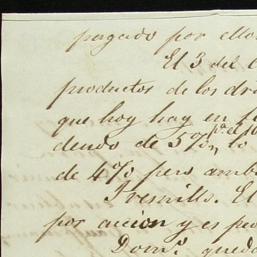 pagado por ello
El 3 del
productos de los dro
que hoy hay en
dendo de 5 %
de 4 % pero amb
Fresnillo. El
por accion y es pe
Dom.º qued